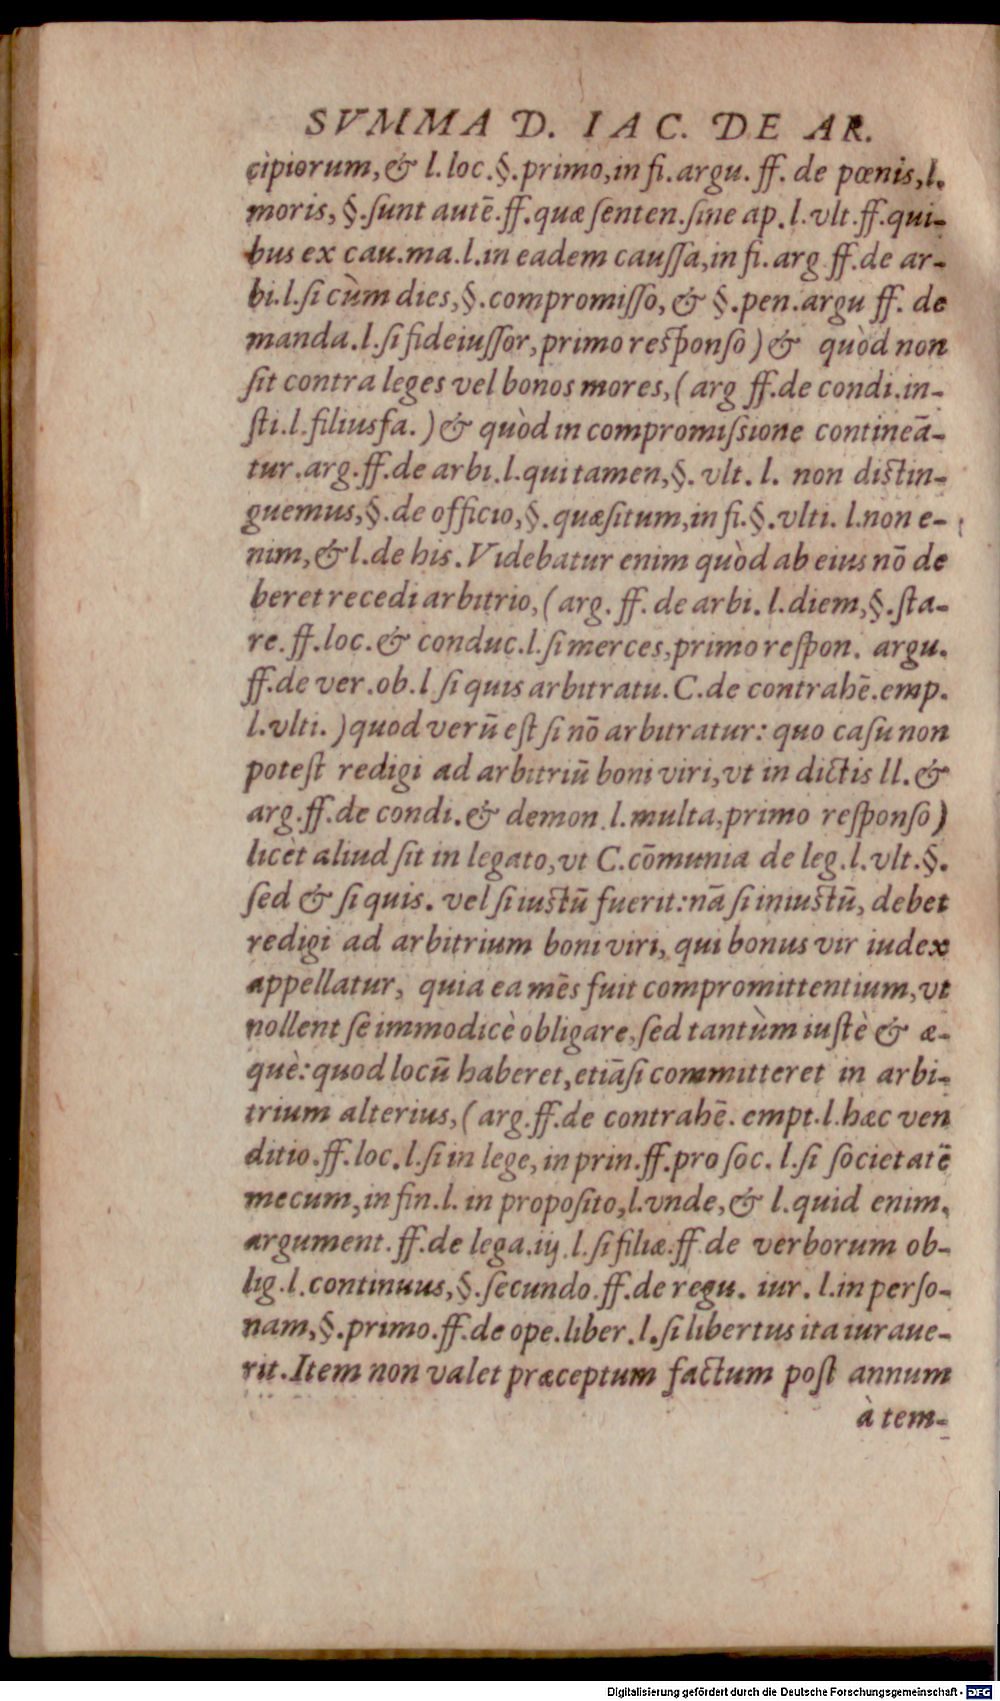 SVMMA D. IAC. DE AR.
cipiorum, & l. loc. §. primo, in fi. argu. ff. de pœnis, l.
moris, §. ſunt autē. ff. quæ ſenten. ſine ap. l. vlt. ff. qui-
bus ex cau. ma. l. in eadem cauſſa, in fi. arg ff. de ar-
bi. l. ſi cùm dies, §. compromiſſo, & §. pen. argu ff. de
manda. l. ſi fideiuſſor, primo reſponſo) & quòd non
ſit contra leges vel bonos mores, (arg ff. de condi. in-
ſti. l. filiusfa.) & quòd in compromiſsione contineā-
tur. arg. ff. de arbi. l. qui tamen, §. vlt. l. non diſtin-
guemus, §. de officio, §. quæſitum, in fi. §. vlti. l. non e-
nim, & l. de his. Videbatur enim quòd ab eius nō de
beret recedi arbitrio, (arg. ff. de arbi. l. diem, §. ſta-
re. ff. loc. & conduc. l. ſi merces, primo reſpon. argu.
ff. de ver. ob. l ſi quis arbitratu. C. de contrahē. emp.
l. vlti.) quod verū eſt ſi nō arbitratur: quo caſu non
poteſt redigi ad arbitriū boni viri, vt in dictis ll. &
arg. ff. de condi. & demon. l. multa, primo reſponſo)
licèt aliud ſit in legato, vt C. cōmunia de leg. l. vlt. §.
ſed & ſi quis. vel ſi iuſtū fuerit: nā ſi iniuſtū, debet
redigi ad arbitrium boni viri, qui bonus vir iudex
appellatur, quia ea mēs fuit compromittentium, vt
nollent ſe immodicè obligare, ſed tantùm iuſtè & æ-
què: quod locū haberet, etiāſi committeret in arbi-
trium alterius, (arg. ff. de contrahē. empt. l. hæc ven
ditio. ff. loc. l. ſi in lege, in prin. ff. pro ſoc. l. ſi ſocietatē
mecum, in fin. l. in propoſito, l. vnde, & l. quid enim.
argument. ff. de lega. iij. l. ſi filiæ. ff. de verborum ob-
lig. l. continuus, §. ſecundo. ff. de regu. iur. l. in perſo-
nam, §. primo. ff. de ope. liber. l. ſi libertus ita iuraue-
rit. Item non valet præceptum factum poſt annum
à tem-
Digitalisierung gefördert durch die Deutsche Forschungsgemeinschaft - DFG